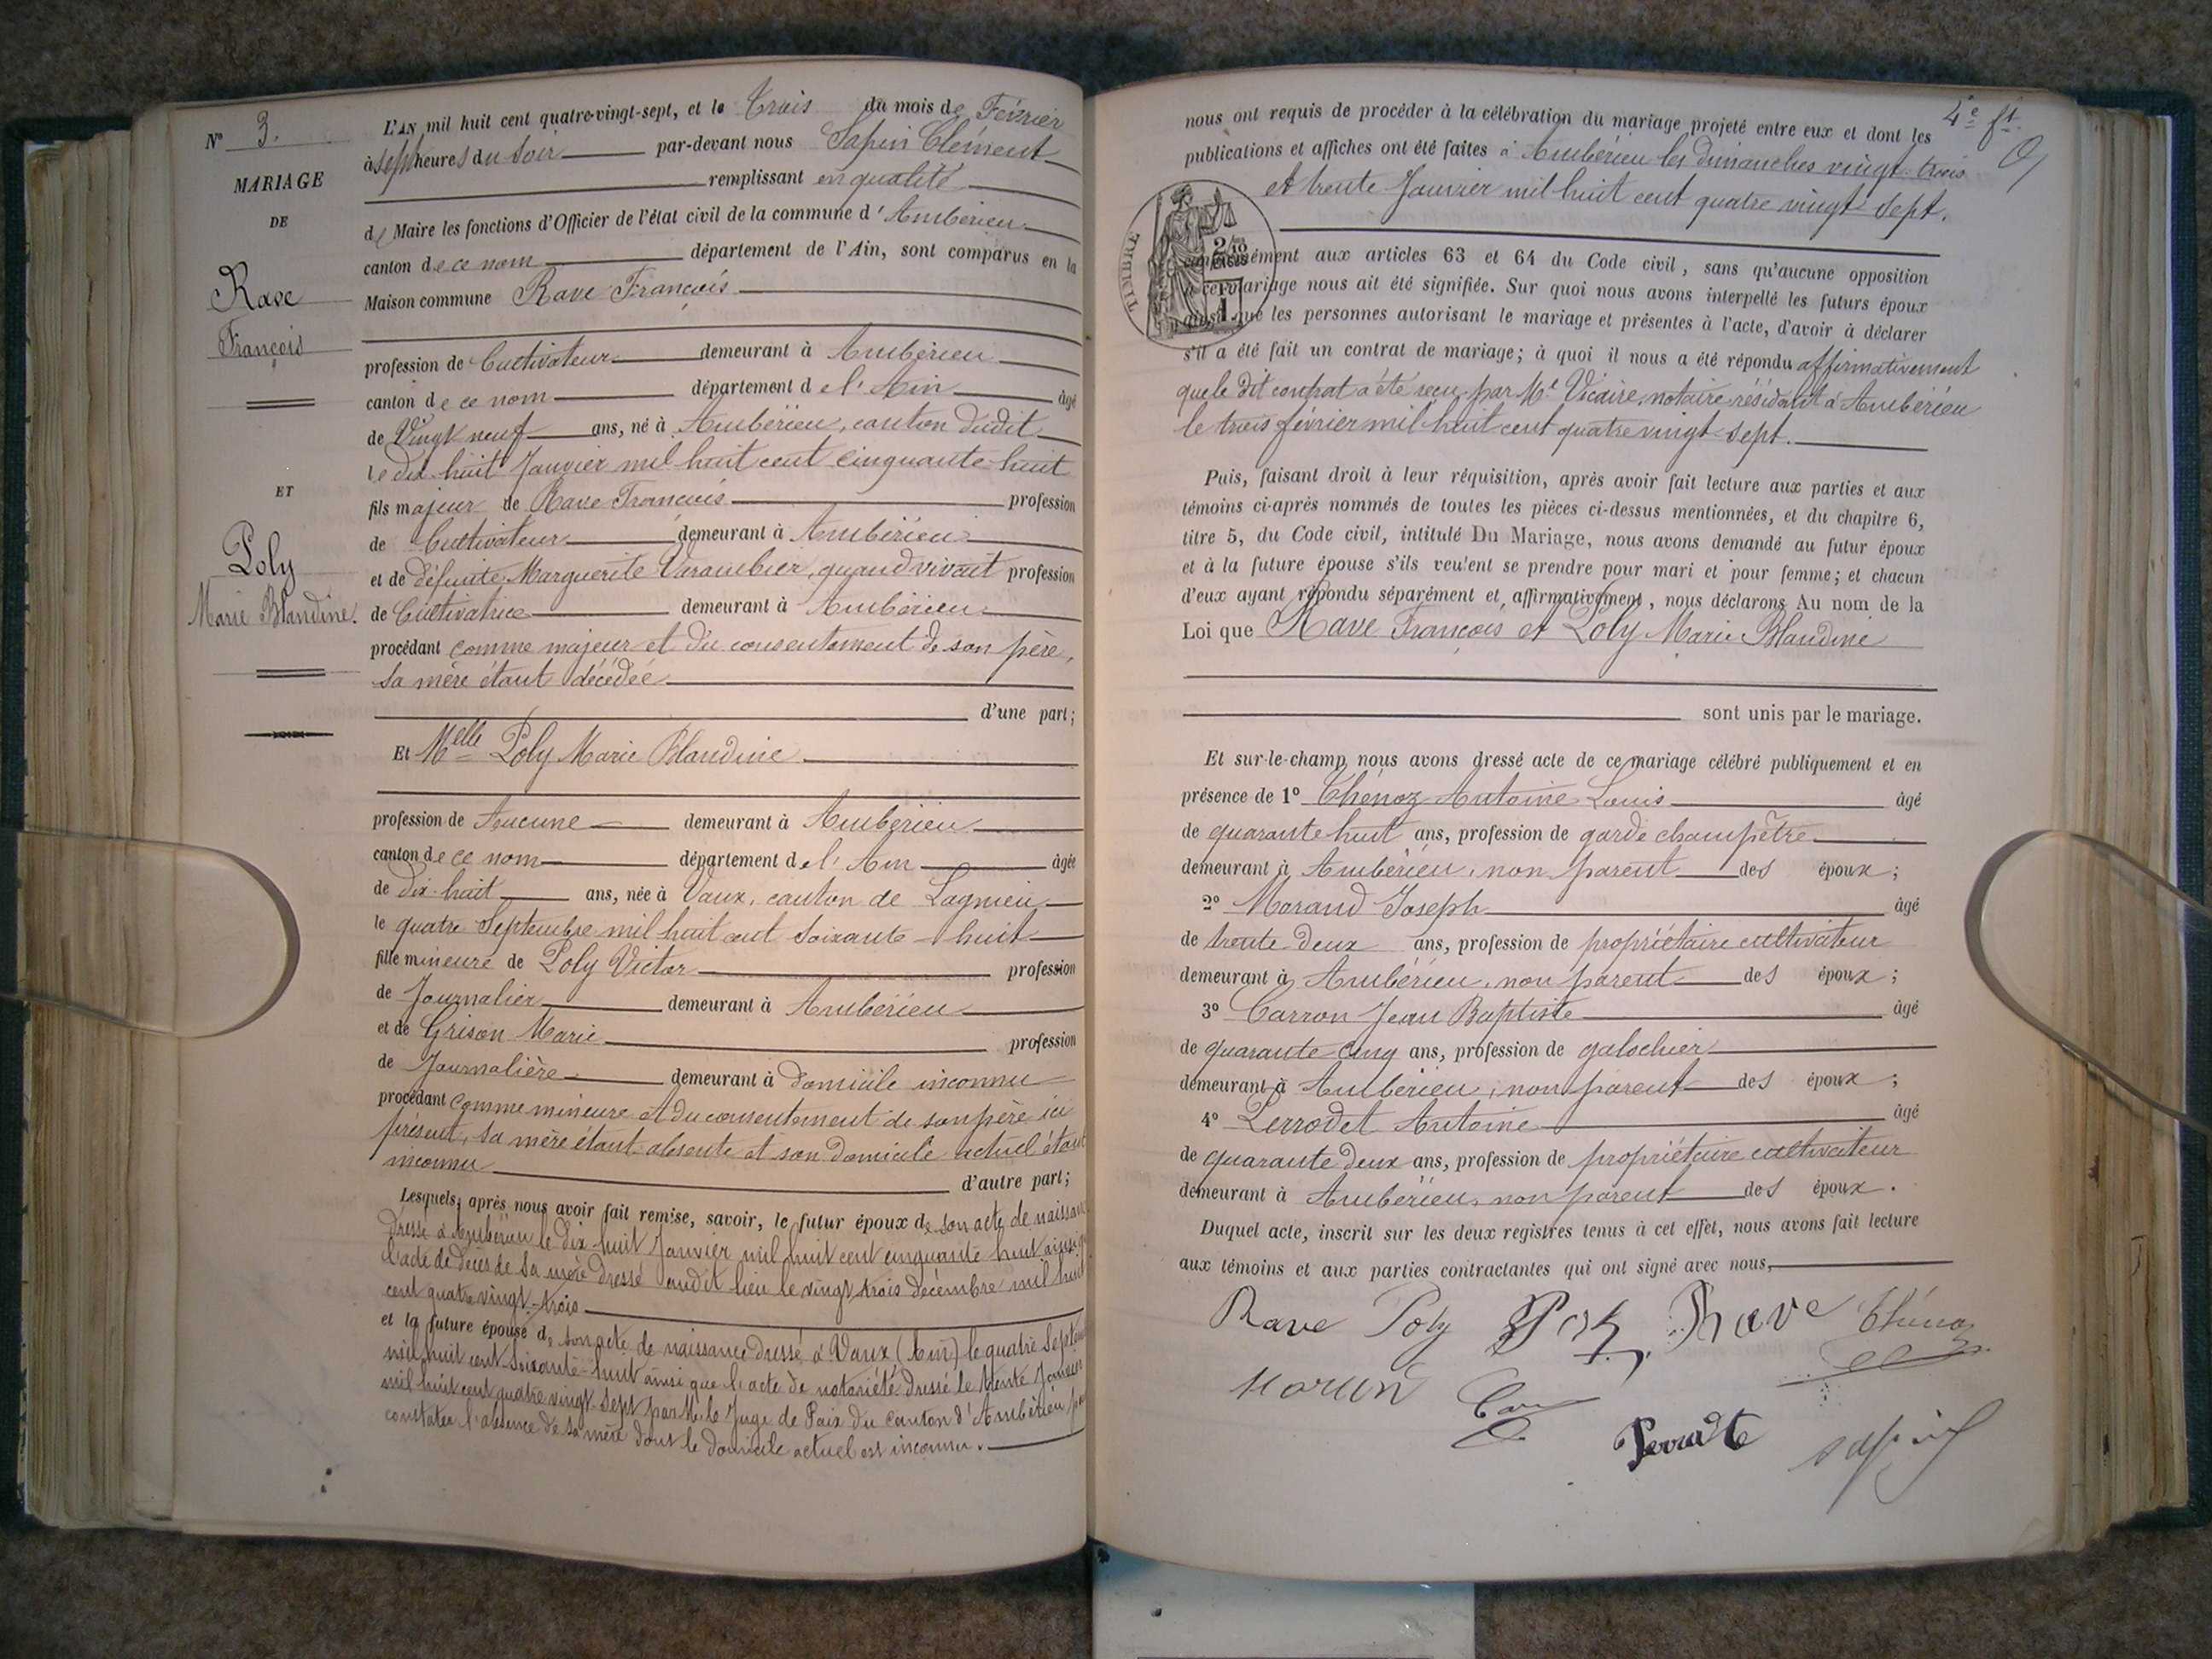 N° 3.
MARIAGE
DE
Rave
François
ET
Poly
Marie Blandine.
L'AN mil huit cent quatre-vingt-sept, et le Trois du mois de Février
à sept heures du soir par-devant nous Sapin Clément
remplissant en qualité
de Maire les fonctions d'Officier de l'état civil de la commune d'Ambérieu
canton de ce nom département de l'Ain, sont comparus en la
Maison commune Rave François
profession de Cultivateur demeurant à Ambérieu
canton de ce nom département de l'Ain âgé
de Vingt neuf ans, né à Ambérieu, canton dudit
le dix-huit Janvier mil huit cent cinquante-huit
fils majeur de Rave François profession
de Cultivateur demeurant à Ambérieu
et de défunte Marguerite Varambier, quand vivait profession
de Cultivatrice demeurant à Ambérieu
procédant comme majeur et du consentement de son père,
sa mère étant décédée
d'une part;
Et Melle Poly Marie Blandine
profession de Aucune demeurant à Ambérieu
canton de ce nom département de l'Ain âgée
de dix-huit ans, née à Vaux, canton de Lagnieu
le quatre Septembre mil huit cent soixante-huit
fille mineure de Poly Victor profession
de Journalier demeurant à Ambérieu
et de Grison Marie profession
de Journalière demeurant à domicile inconnu
procédant comme mineure et du consentement de son père ici
présent, sa mère étant absente et son domicile actuel étant
inconnu
d'autre part;
Lesquels, après nous avoir fait remise, savoir, le futur époux de son acte de naissance
dressé à Ambérieu le dix-huit Janvier mil huit cent cinquante huit ainsi que
l'acte de décès de sa mère dressé audit lieu le vingt trois décembre mil huit
cent quatre vingt-trois
et la future épouse de son acte de naissance dressé à Vaux (Ain) le quatre Septembre
mil huit cent soixante-huit ainsi que l'acte de notoriété dressé le trente Janvier
mil huit cent quatre vingt sept par M. le Juge de Paix du canton d'Ambérieu pour
constater l'absence de sa mère dont le domicile actuel est inconnu.
4e ft.
nous ont requis de procéder à la célébration du mariage projeté entre eux et dont les
publications et affiches ont été faites à Ambérieu les dimanches vingt-trois
et trente Janvier mil huit cent quatre vingt sept.
TIMBRE
conformément aux articles 63 et 64 du Code civil, sans qu'aucune opposition
à ce mariage nous ait été signifiée. Sur quoi nous avons interpellé les futurs époux
ainsi que les personnes autorisant le mariage et présentes à l'acte, d'avoir à déclarer
s'il a été fait un contrat de mariage; à quoi il nous a été répondu affirmativement
que le dit contrat a été reçu par Me Vicaire, notaire résidant à Ambérieu
le trois février mil huit cent quatre vingt-sept.
Puis, faisant droit à leur réquisition, après avoir fait lecture aux parties et aux
témoins ci-après nommés de toutes les pièces ci-dessus mentionnées, et du chapitre 6,
titre 5, du Code civil, intitulé Du Mariage, nous avons demandé au futur époux
et à la future épouse s'ils veulent se prendre pour mari et pour femme; et chacun
d'eux ayant répondu séparément et affirmativement, nous déclarons Au nom de la
Loi que Rave François et Poly Marie Blandine
sont unis par le mariage.
Et sur-le-champ nous avons dressé acte de ce mariage célébré publiquement et en
présence de 1° Thénoz Antoine Louis âgé
de quarante huit ans, profession de garde champêtre
demeurant à Ambérieu, non parent des époux;
2° Morand Joseph âgé
de trente deux ans, profession de propriétaire cultivateur
demeurant à Ambérieu, non parent des époux;
3° Carron Jean Baptiste âgé
de quarante cinq ans, profession de galochier
demeurant à Ambérieu, non parent des époux;
4° Perrodet Antoine âgé
de quarante deux ans, profession de propriétaire cultivateur
demeurant à Ambérieu, non parent des époux.
Duquel acte, inscrit sur les deux registres tenus à cet effet, nous avons fait lecture
aux témoins et aux parties contractantes qui ont signé avec nous.
Rave Poly Rave Thénoz
Sapin